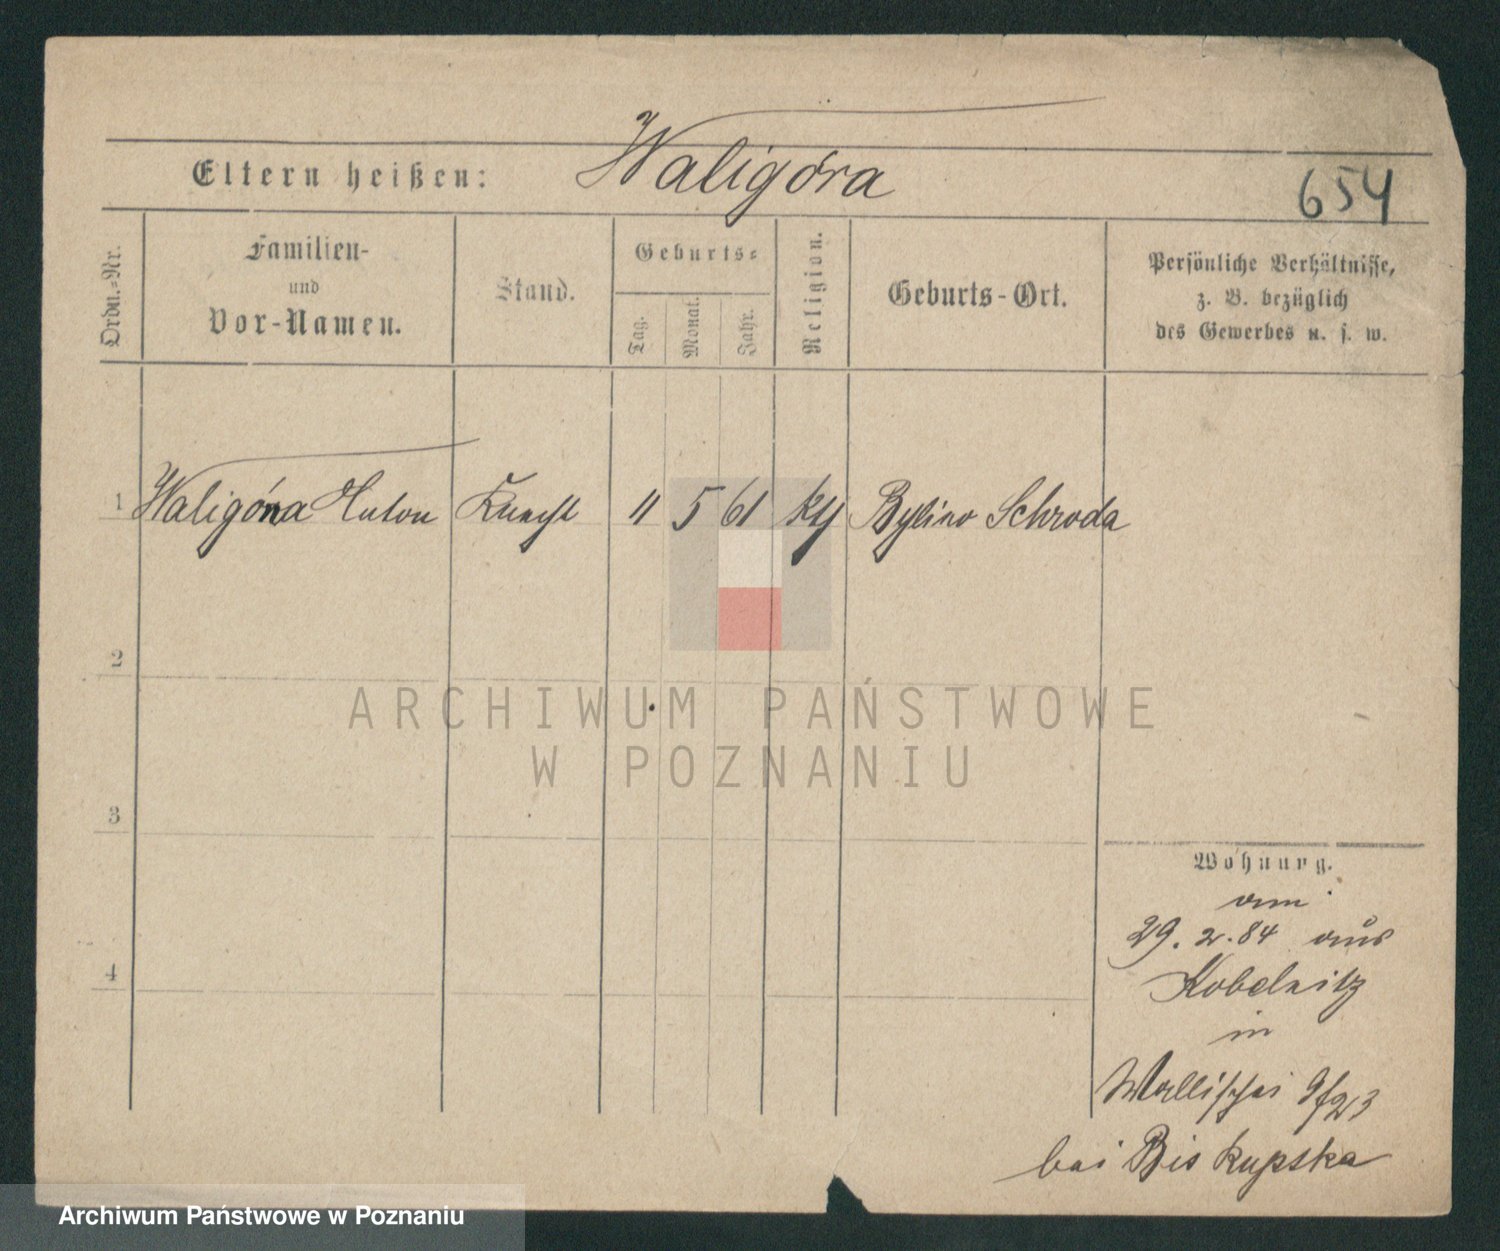 Eltern heißen: Waligóra
654
Ordn.-Nr.
Familien-
und
Vor-Namen.
Stand.
Geburts-
Tag.
Monat.
Jahr.
Religion.
Geburts-Ort.
Persönliche Verhältnisse,
z. B. bezüglich
des Gewerbes u. s. w.
1 Waligóra Anton Knecht 11 5 61 kth Bylino Schroda
2
ARCHIWUM PAŃSTWOWE
W POZNANIU
3
Wohnung.
am
29. 2. 84 aus
4
Kobelnitz
in
Wallischei 9/23
bei Biskupska
Archiwum Państwowe w Poznaniu